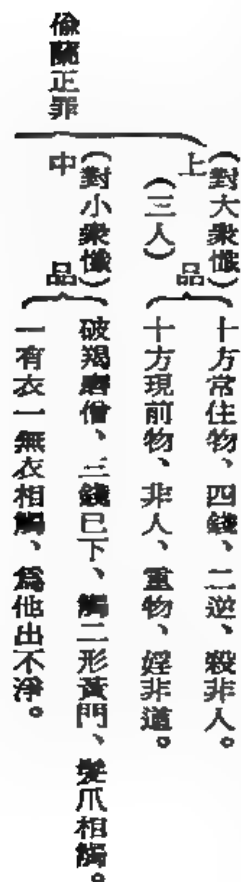 偷蘭正罪
上品
(對大衆懺)
(三人)
十方常住物、四錢、二逆、殺非人。
十方現前物、非人、重物、婬非道。
中品
(對小衆懺)
破羯磨僧、三錢已下、觸二形黃門、髮爪相觸。
一有衣一無衣相觸、爲他出不淨。